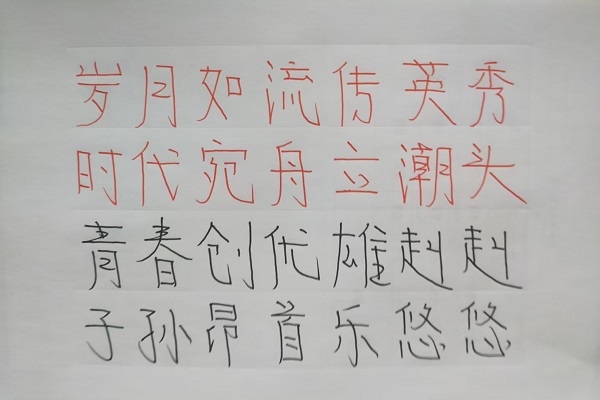 岁月如流传英秀
时代宛舟立潮头
青春创优雄赳赳
子孙昂首乐悠悠